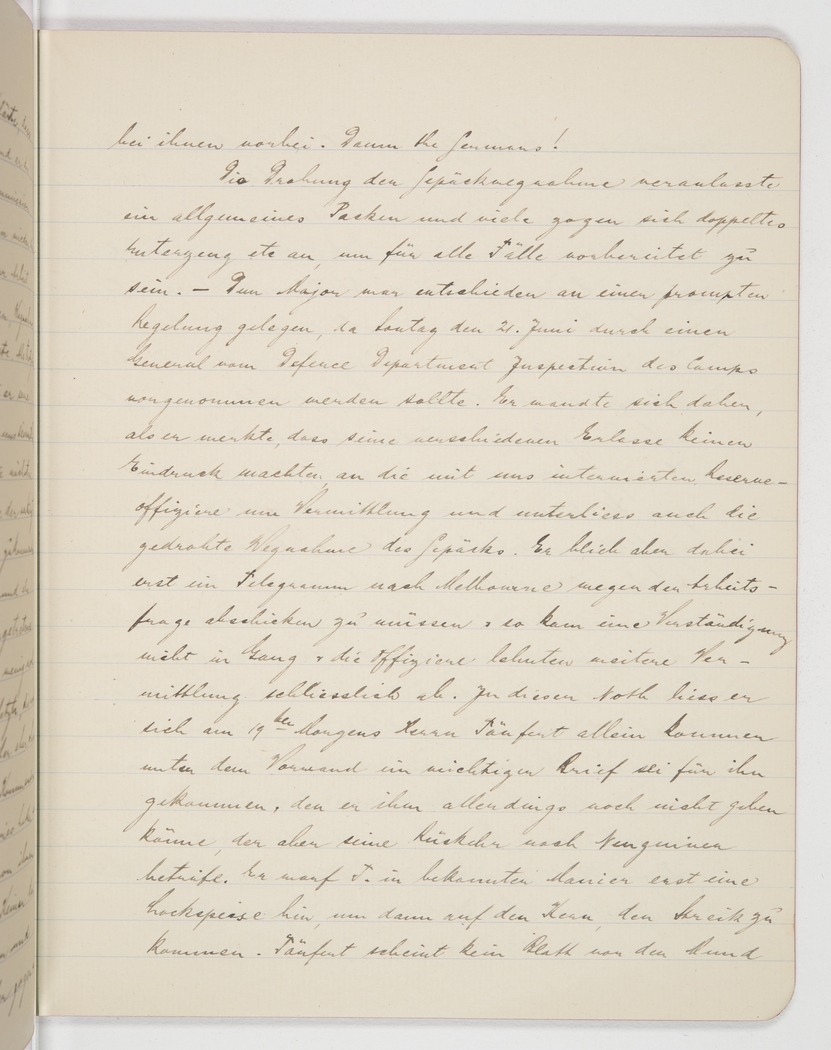 bei ihnen vorbei. Damn the Germans!
Die Drohung der Gepäckwegnahme veranlasste
ein allgemeines Packen und viele zogen sich doppeltes
Unterzeug etc an, um für alle Fälle vorbereitet zu
sein. — Dem Major war entschieden an einer prompten
Regelung gelegen, da Sontag den 21. Juni durch einen
General vom Defence Department Inspection des Camps
vorgenommen werden sollte. Er wandte sich daher,
als er merkte, dass seine verschiedenen Erlasse keinen
Eindruck machten, an die mit uns internierten Reserve-
offiziere um Vermittlung und unterliess auch die
gedrohte Wegnahme des Gepäcks. Er blieb aber dabei
erst ein Telegramm nach Melbourne wegen der Arbeits-
frage abschicken zu müssen & so kam eine Verständigung
nicht in Gang & die Offiziere lehnten weitere Ver-
mittlung schliesslich ab. In dieser Noth liess er
sich am 19ten Morgens Herrn Täufert allein kommen
unter dem Vorwand ein wichtiger Brief sei für ihn
gekommen, den er ihm allerdings noch nicht geben
könne, der aber seine Rückkehr nach Neuguinea
beträfe. Er warf T. in bekannter Manier erst eine
Lockspeise hin, um dann auf den Kern, den Streik zu
kommen. Täufert scheint kein Blatt vor den Mund